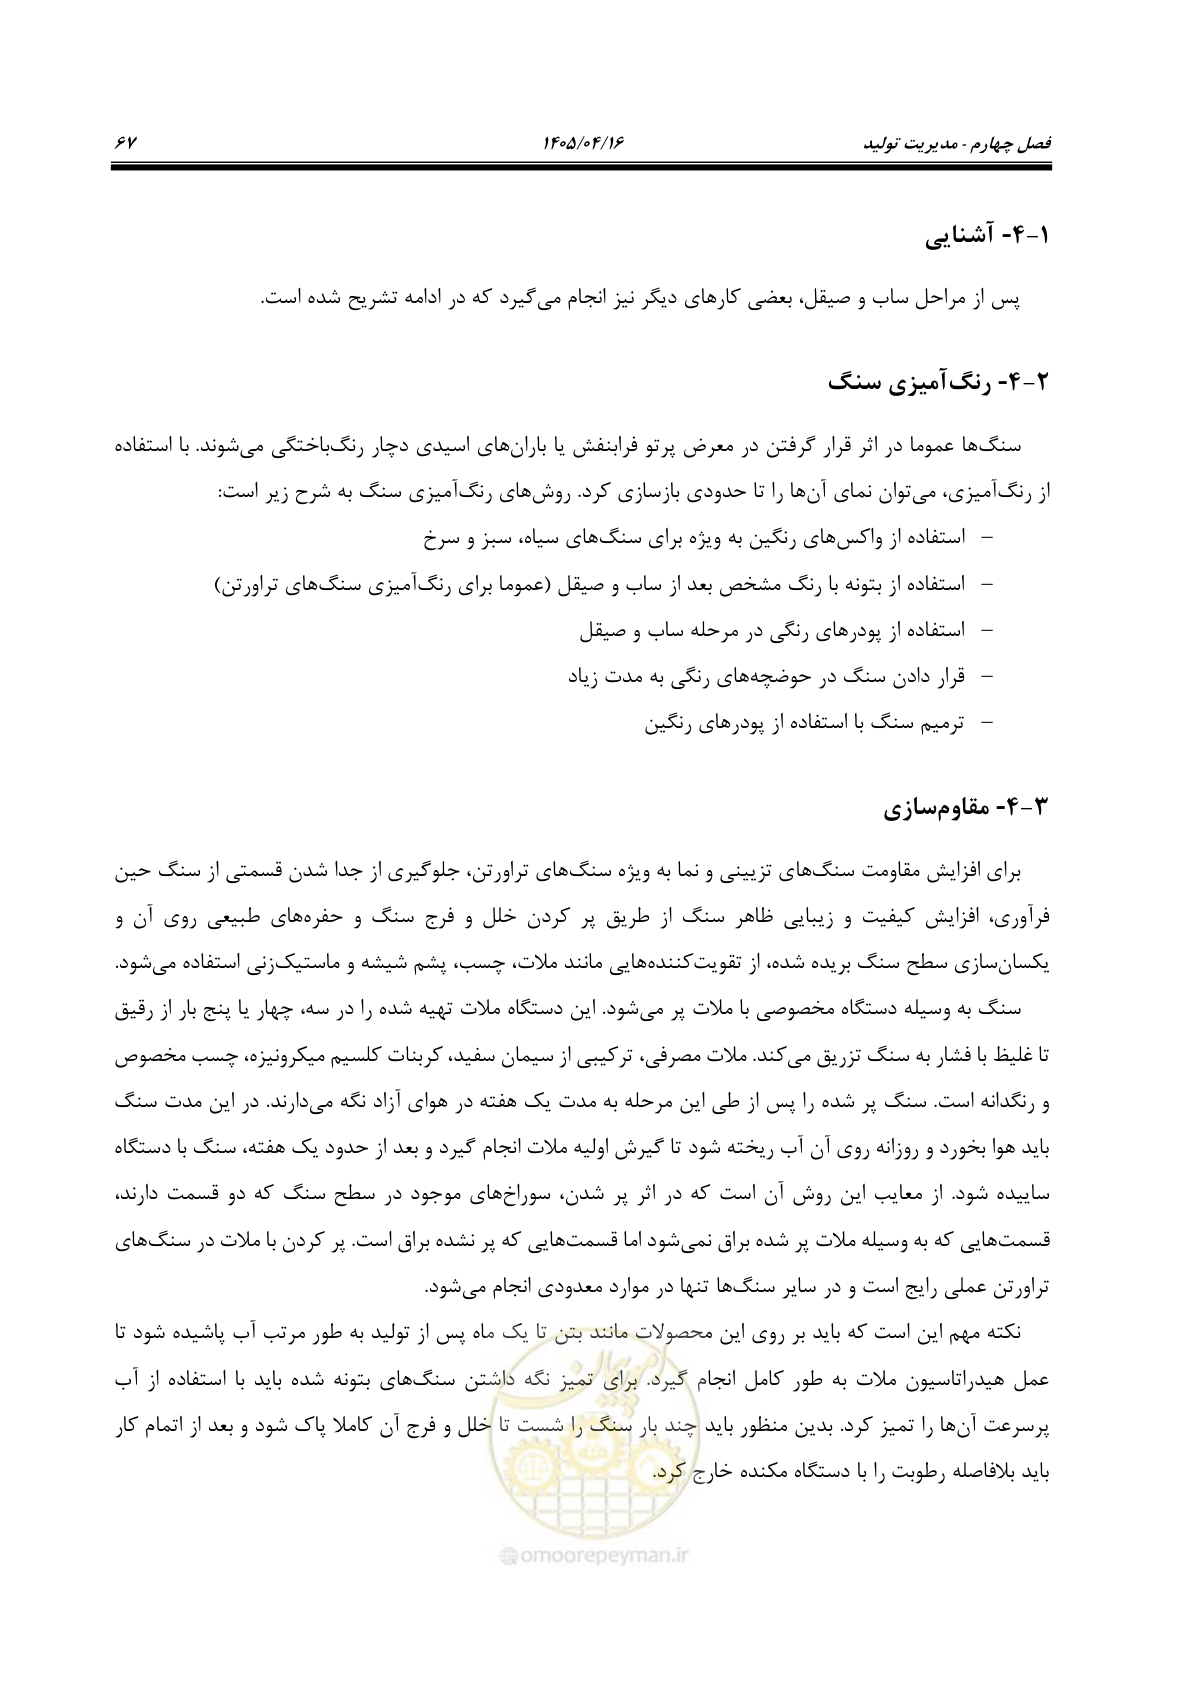 فصل چهارم - مدیریت تولید ۱۴۰۵/۰۴/۱۶ ۶۷
۴-۱- آشنایی
پس از مراحل ساب و صیقل، بعضی کارهای دیگر نیز انجام می‌گیرد که در ادامه تشریح شده است.
۴-۲- رنگ‌آمیزی سنگ
سنگ‌ها عموما در اثر قرار گرفتن در معرض پرتو فرابنفش یا باران‌های اسیدی دچار رنگ‌باختگی می‌شوند. با استفاده
از رنگ‌آمیزی، می‌توان نمای آن‌ها را تا حدودی بازسازی کرد. روش‌های رنگ‌آمیزی سنگ به شرح زیر است:
– استفاده از واکس‌های رنگین به ویژه برای سنگ‌های سیاه، سبز و سرخ
– استفاده از بتونه با رنگ مشخص بعد از ساب و صیقل (عموما برای رنگ‌آمیزی سنگ‌های تراورتن)
– استفاده از پودرهای رنگی در مرحله ساب و صیقل
– قرار دادن سنگ در حوضچه‌های رنگی به مدت زیاد
– ترمیم سنگ با استفاده از پودرهای رنگین
۴-۳- مقاوم‌سازی
برای افزایش مقاومت سنگ‌های تزیینی و نما به ویژه سنگ‌های تراورتن، جلوگیری از جدا شدن قسمتی از سنگ حین
فرآوری، افزایش کیفیت و زیبایی ظاهر سنگ از طریق پر کردن خلل و فرج سنگ و حفره‌های طبیعی روی آن و
یکسان‌سازی سطح سنگ بریده شده، از تقویت‌کننده‌هایی مانند ملات، چسب، پشم شیشه و ماستیک‌زنی استفاده می‌شود.
سنگ به وسیله دستگاه مخصوصی با ملات پر می‌شود. این دستگاه ملات تهیه شده را در سه، چهار یا پنج بار از رقیق
تا غلیظ با فشار به سنگ تزریق می‌کند. ملات مصرفی، ترکیبی از سیمان سفید، کربنات کلسیم میکرونیزه، چسب مخصوص
و رنگدانه است. سنگ پر شده را پس از طی این مرحله به مدت یک هفته در هوای آزاد نگه می‌دارند. در این مدت سنگ
باید هوا بخورد و روزانه روی آن آب ریخته شود تا گیرش اولیه ملات انجام گیرد و بعد از حدود یک هفته، سنگ با دستگاه
ساییده شود. از معایب این روش آن است که در اثر پر شدن، سوراخ‌های موجود در سطح سنگ که دو قسمت دارند،
قسمت‌هایی که به وسیله ملات پر شده براق نمی‌شود اما قسمت‌هایی که پر نشده براق است. پر کردن با ملات در سنگ‌های
تراورتن عملی رایج است و در سایر سنگ‌ها تنها در موارد معدودی انجام می‌شود.
نکته مهم این است که باید بر روی این محصولات مانند بتن تا یک ماه پس از تولید به طور مرتب آب پاشیده شود تا
عمل هیدراتاسیون ملات به طور کامل انجام گیرد. برای تمیز نگه داشتن سنگ‌های بتونه شده باید با استفاده از آب
پرسرعت آن‌ها را تمیز کرد. بدین منظور باید چند بار سنگ را شست تا خلل و فرج آن کاملا پاک شود و بعد از اتمام کار
باید بلافاصله رطوبت را با دستگاه مکنده خارج کرد.
امور پیمان
@omoorepeyman.ir